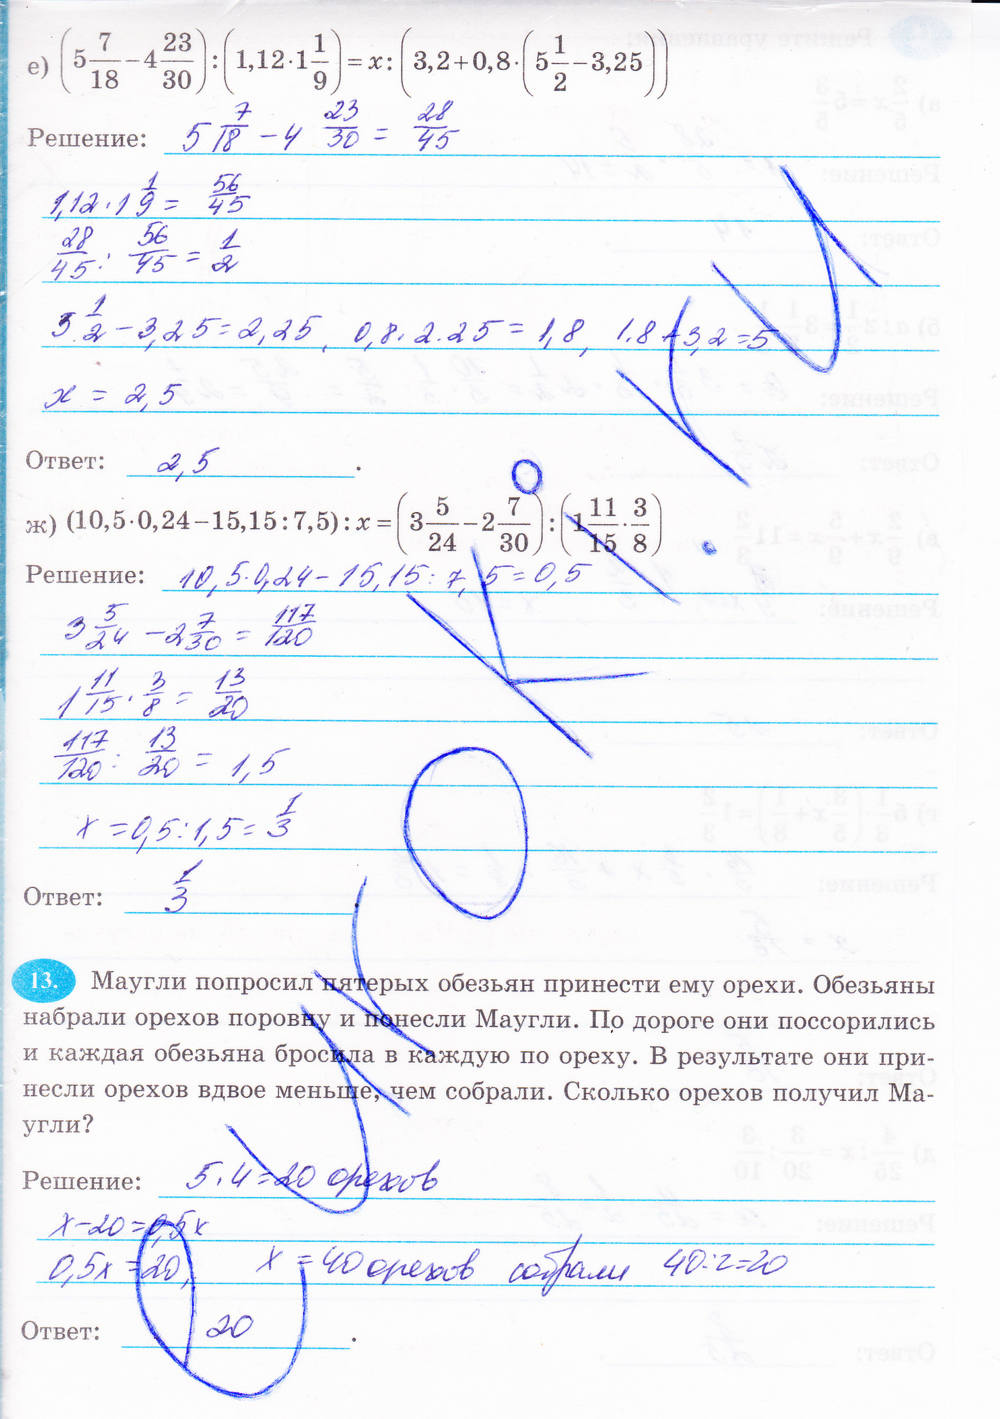 е) (5 7/18 − 4 23/30) : (1,12 · 1 1/9) = x : (3,2 + 0,8 · (5 1/2 − 3,25))
Решение: 5 7/18 − 4 23/30 = 28/45
1,12 · 1 1/9 = 56/45
28/45 : 56/45 = 1/2
5 1/2 − 3,25 = 2,25, 0,8 · 2.25 = 1,8, 1.8 + 3,2 = 5
x = 2,5
Ответ: 2,5.
ж) (10,5 · 0,24 − 15,15 : 7,5) : x = (3 5/24 − 2 7/30) : (1 11/15 · 3/8)
Решение: 10,5 · 0,24 − 15,15 : 7,5 = 0,5
3 5/24 − 2 7/30 = 117/120
1 11/15 · 3/8 = 13/20
117/120 : 13/20 = 1,5
x = 0,5 : 1,5 = 1/3
Ответ: 1/3.
13. Маугли попросил пятерых обезьян принести ему орехи. Обезьяны
набрали орехов поровну и понесли Маугли. По дороге они поссорились
и каждая обезьяна бросила в каждую по ореху. В результате они при-
несли орехов вдвое меньше, чем собрали. Сколько орехов получил Ма-
угли?
Решение: 5 · 4 = 20 орехов
x − 20 = 0,5x
0,5x = 20, x = 40 орехов собрали 40 : 2 = 20
Ответ: 20.